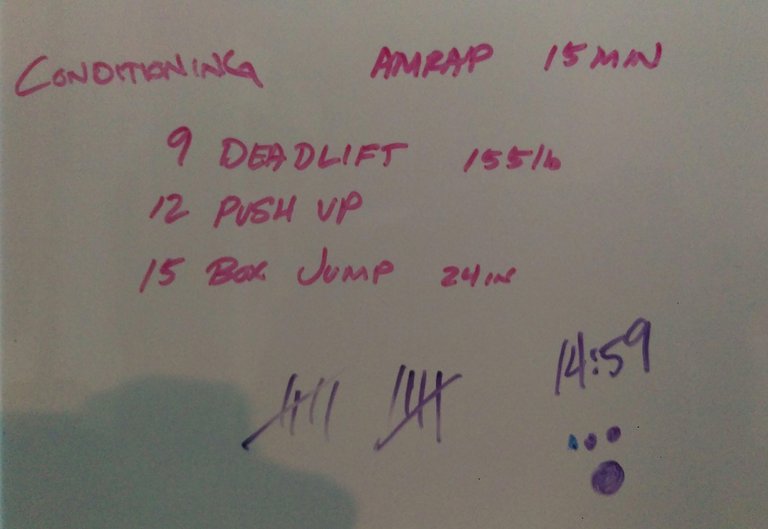 CONDITIONING AMRAP 15 MIN
9 DEADLIFT 155lb
12 PUSH UP
15 BOX JUMP 24in
14:59